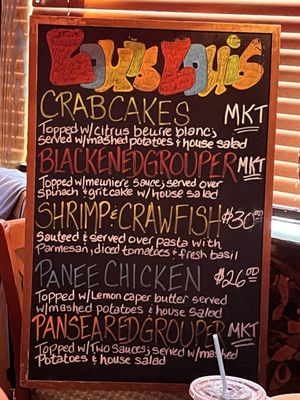 Louis Louis
CRABCAKES MKT
Topped w/citrus beurre blanc;
served w/mashed potatoes & house salad
BLACKENED GROUPER MKT
Topped w/meuniere sauce; served over
spinach & gritcake w/ house salad
SHRIMP & CRAWFISH $30.00
Sauteed & served over pasta with
Parmesan, diced tomatoes & fresh basil
PANEE CHICKEN $26.00
Topped w/Lemon caper butter served
w/mashed potatoes & house salad
PANSEARED GROUPER MKT
Topped w/Two Sauces; served w/mashed
Potatoes & house salad